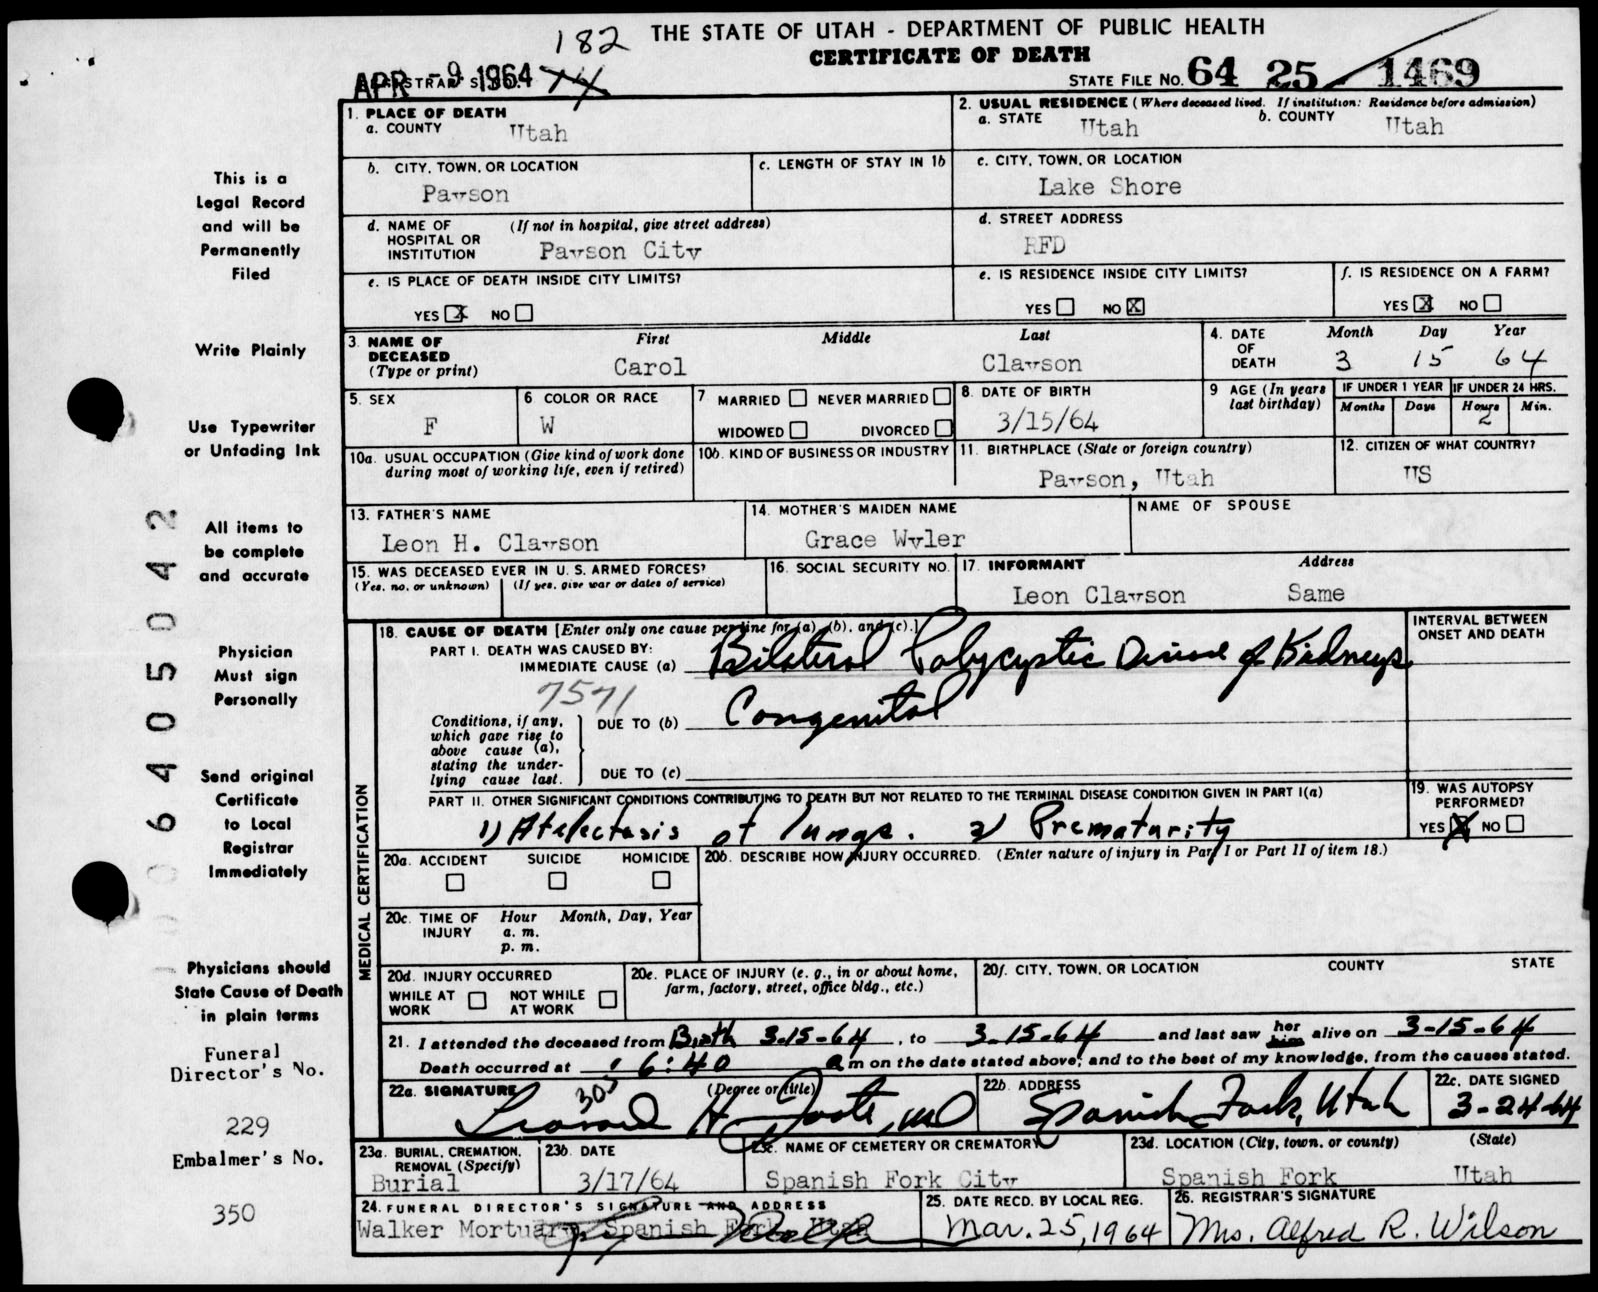 THE STATE OF UTAH - DEPARTMENT OF PUBLIC HEALTH
CERTIFICATE OF DEATH
182
APR -9 1964
REGISTRAR'S NO. 74
STATE FILE NO. 64 25 1469
1. PLACE OF DEATH
a. COUNTY Utah
2. USUAL RESIDENCE (Where deceased lived. If institution: Residence before admission)
a. STATE Utah b. COUNTY Utah
b. CITY, TOWN, OR LOCATION
Payson
c. LENGTH OF STAY IN 1b
c. CITY, TOWN, OR LOCATION
Lake Shore
d. NAME OF HOSPITAL OR INSTITUTION (If not in hospital, give street address)
Payson City
d. STREET ADDRESS
RFD
e. IS PLACE OF DEATH INSIDE CITY LIMITS?
YES X NO
e. IS RESIDENCE INSIDE CITY LIMITS?
YES NO X
f. IS RESIDENCE ON A FARM?
YES X NO
3. NAME OF DECEASED (Type or print)
First Middle Last
Carol Clawson
4. DATE OF DEATH
Month Day Year
3 15 64
5. SEX
F
6 COLOR OR RACE
W
7 MARRIED NEVER MARRIED
WIDOWED DIVORCED
8. DATE OF BIRTH
3/15/64
9 AGE (In years last birthday)
IF UNDER 1 YEAR
Months Days
IF UNDER 24 HRS.
Hours Min.
2
10a. USUAL OCCUPATION (Give kind of work done during most of working life, even if retired)
10b. KIND OF BUSINESS OR INDUSTRY
11. BIRTHPLACE (State or foreign country)
Payson, Utah
12. CITIZEN OF WHAT COUNTRY?
US
13. FATHER'S NAME
Leon H. Clawson
14. MOTHER'S MAIDEN NAME
Grace Wyler
NAME OF SPOUSE
15. WAS DECEASED EVER IN U. S. ARMED FORCES?
(Yes, no, or unknown) (If yes, give war or dates of service)
16. SOCIAL SECURITY NO.
17. INFORMANT Address
Leon Clawson Same
MEDICAL CERTIFICATION
18. CAUSE OF DEATH [Enter only one cause per line for (a), (b), and (c).]
INTERVAL BETWEEN ONSET AND DEATH
PART I. DEATH WAS CAUSED BY:
IMMEDIATE CAUSE (a) Bilateral Polycystic Disease of Kidneys
7571
Conditions, if any, which gave rise to above cause (a), stating the underlying cause last.
DUE TO (b) Congenital
DUE TO (c)
PART II. OTHER SIGNIFICANT CONDITIONS CONTRIBUTING TO DEATH BUT NOT RELATED TO THE TERMINAL DISEASE CONDITION GIVEN IN PART I(a)
1) Atelectasis of lungs. 2) Prematurity
19. WAS AUTOPSY PERFORMED?
YES X NO
20a. ACCIDENT SUICIDE HOMICIDE
20b. DESCRIBE HOW INJURY OCCURRED. (Enter nature of injury in Part I or Part II of item 18.)
20c. TIME OF INJURY Hour Month, Day, Year
a. m.
p. m.
20d. INJURY OCCURRED
WHILE AT WORK NOT WHILE AT WORK
20e. PLACE OF INJURY (e. g., in or about home, farm, factory, street, office bldg., etc.)
20f. CITY, TOWN, OR LOCATION COUNTY STATE
21. I attended the deceased from Birth 3-15-64, to 3-15-64 and last saw her him alive on 3-15-64
Death occurred at 6:40 a m on the date stated above; and to the best of my knowledge, from the causes stated.
22a. SIGNATURE (Degree or title)
305
Leonard H. Foote, MD
22b. ADDRESS
Spanish Fork, Utah
22c. DATE SIGNED
3-24-64
23a. BURIAL, CREMATION, REMOVAL (Specify)
Burial
23b. DATE
3/17/64
23c. NAME OF CEMETERY OR CREMATORY
Spanish Fork City
23d. LOCATION (City, town, or county) (State)
Spanish Fork Utah
24. FUNERAL DIRECTOR'S SIGNATURE AND ADDRESS
Walker Mortuary Spanish Fork, Utah
25. DATE RECD. BY LOCAL REG.
Mar. 25, 1964
26. REGISTRAR'S SIGNATURE
Mrs. Alfred R. Wilson
This is a
Legal Record
and will be
Permanently
Filed
Write Plainly
Use Typewriter
or Unfading Ink
All items to
be complete
and accurate
Physician
Must sign
Personally
Send original
Certificate
to Local
Registrar
Immediately
Physicians should
State Cause of Death
in plain terms
Funeral
Director's No.
229
Embalmer's No.
350
6405042